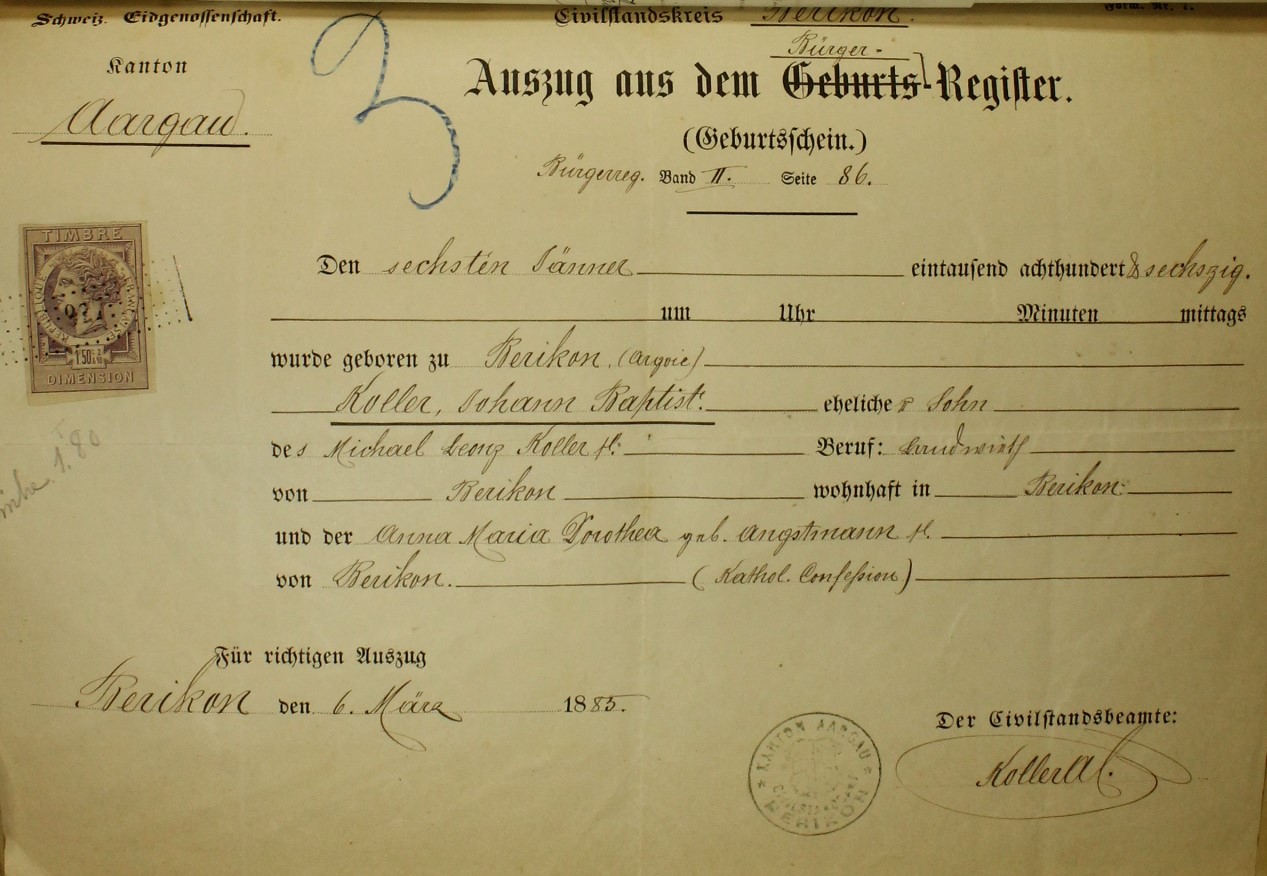 Schweiz. Eidgenossenschaft.
Civilstandskreis Berikon.
Form. Nr. 1.
Kanton
Aargau.
3
Bürger-
Auszug aus dem Geburts-Register.
(Geburtsschein.)
Bürgerreg. Band II. Seite 86.
TIMBRE
1'50
DIMENSION
Den sechsten Jänner eintausend achthundert & sechszig.
um Uhr Minuten mittags
wurde geboren zu Berikon. (Argovie)
Koller, Johann Baptist. eheliche r Sohn
des Michael Leonz Koller sl: Beruf: Landwirth
von Berikon wohnhaft in Berikon
und der Anna Maria Dorothea geb. Angstmann sl.
von Berikon. (Kathol. Confession)
Für richtigen Auszug
Berikon den 6. März 1885.
Der Civilstandsbeamte:
Koller
KANTON AARGAU
CIVILSTANDSAMT
BERIKON